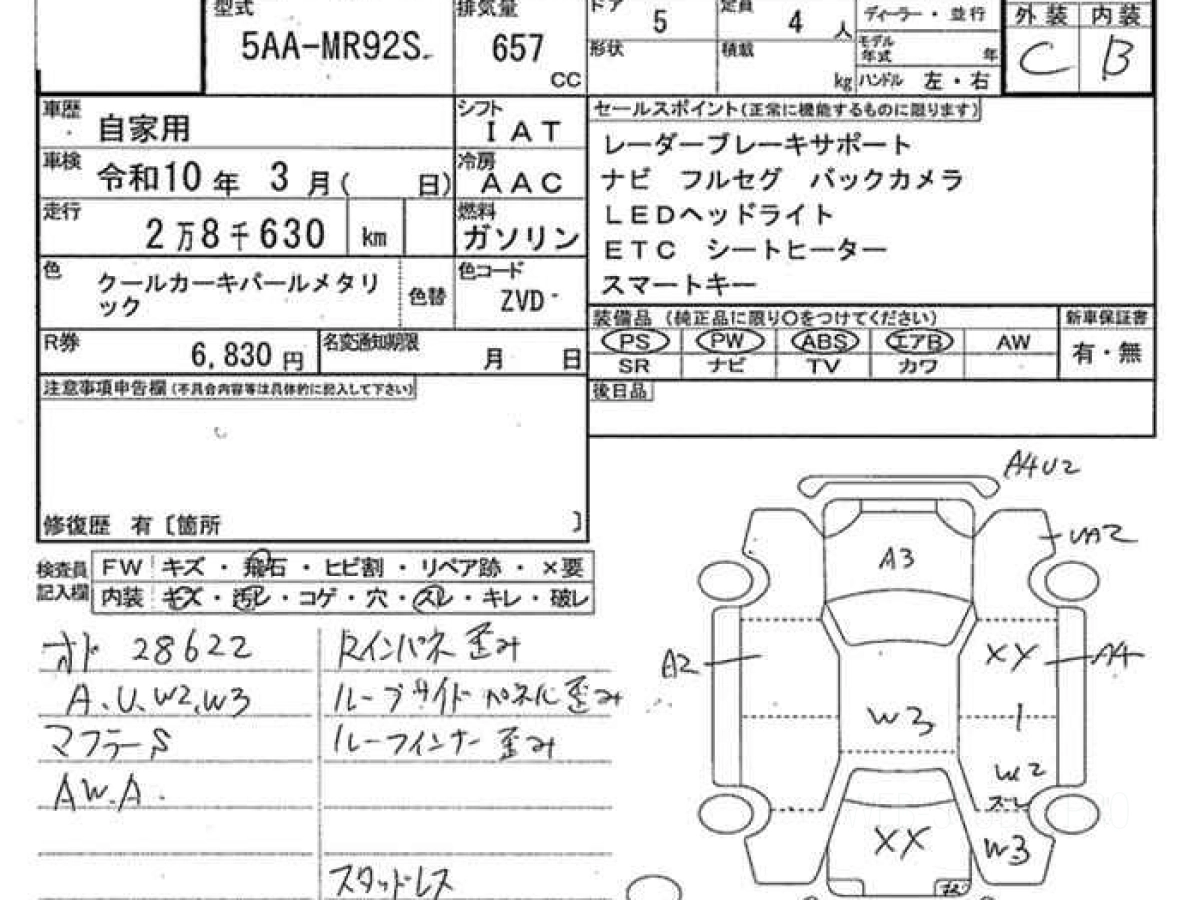 型式 5AA-MR92S
排気量 657 CC
ドア 5
定員 4 人
形状
積載 kg
ディーラー・並行
モデル年式 年
ハンドル 左・右
外装 内装
C B
車歴 自家用
シフト IAT
車検 令和10年 3月( 日)
冷房 AAC
走行 2万8千630 km
燃料 ガソリン
色 クールカーキパールメタリック
色替
色コード ZVD
R券 6,830 円
名変通知期限 月 日
セールスポイント(正常に機能するものに限ります)
レーダーブレーキサポート
ナビ フルセグ バックカメラ
LEDヘッドライト
ETC シートヒーター
スマートキー
装備品 (純正品に限り○をつけてください)
新車保証書
PS PW ABS エアB AW
有・無
SR ナビ TV カワ
後日品
注意事項申告欄(不具合内容等は具体的に記入して下さい)
修復歴 有〔箇所 〕
検査員記入欄
FW キズ・飛石・ヒビ割・リペア跡・×要
内装 キズ・汚レ・コゲ・穴・スレ・キレ・破レ
オド 28622
A.U.W2.W3
マフラーS
AW.A.
Rインパネ歪み
ルーフサイドパネル歪み
ルーフインナー歪み
スタッドレス
A4U2
UA2
A3
A2
XY
A4
W3
1
W2
ズレ
XX
W3